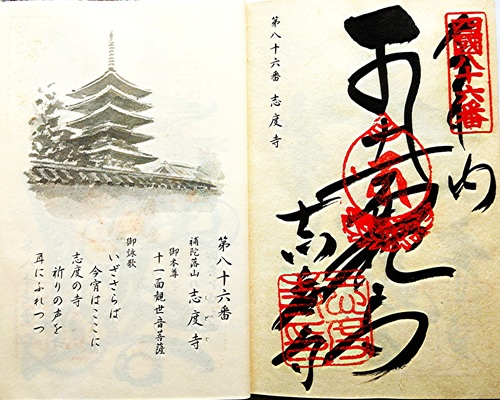 四國八十六番
奉
内
志度寺
第八十六番 志度寺
第八十六番
補陀落山 志度寺
しどじ
御本尊
十一面観世音菩薩
御詠歌
いざさらば
今宵はここに
志度の寺
祈りの声を
耳にふれつつ